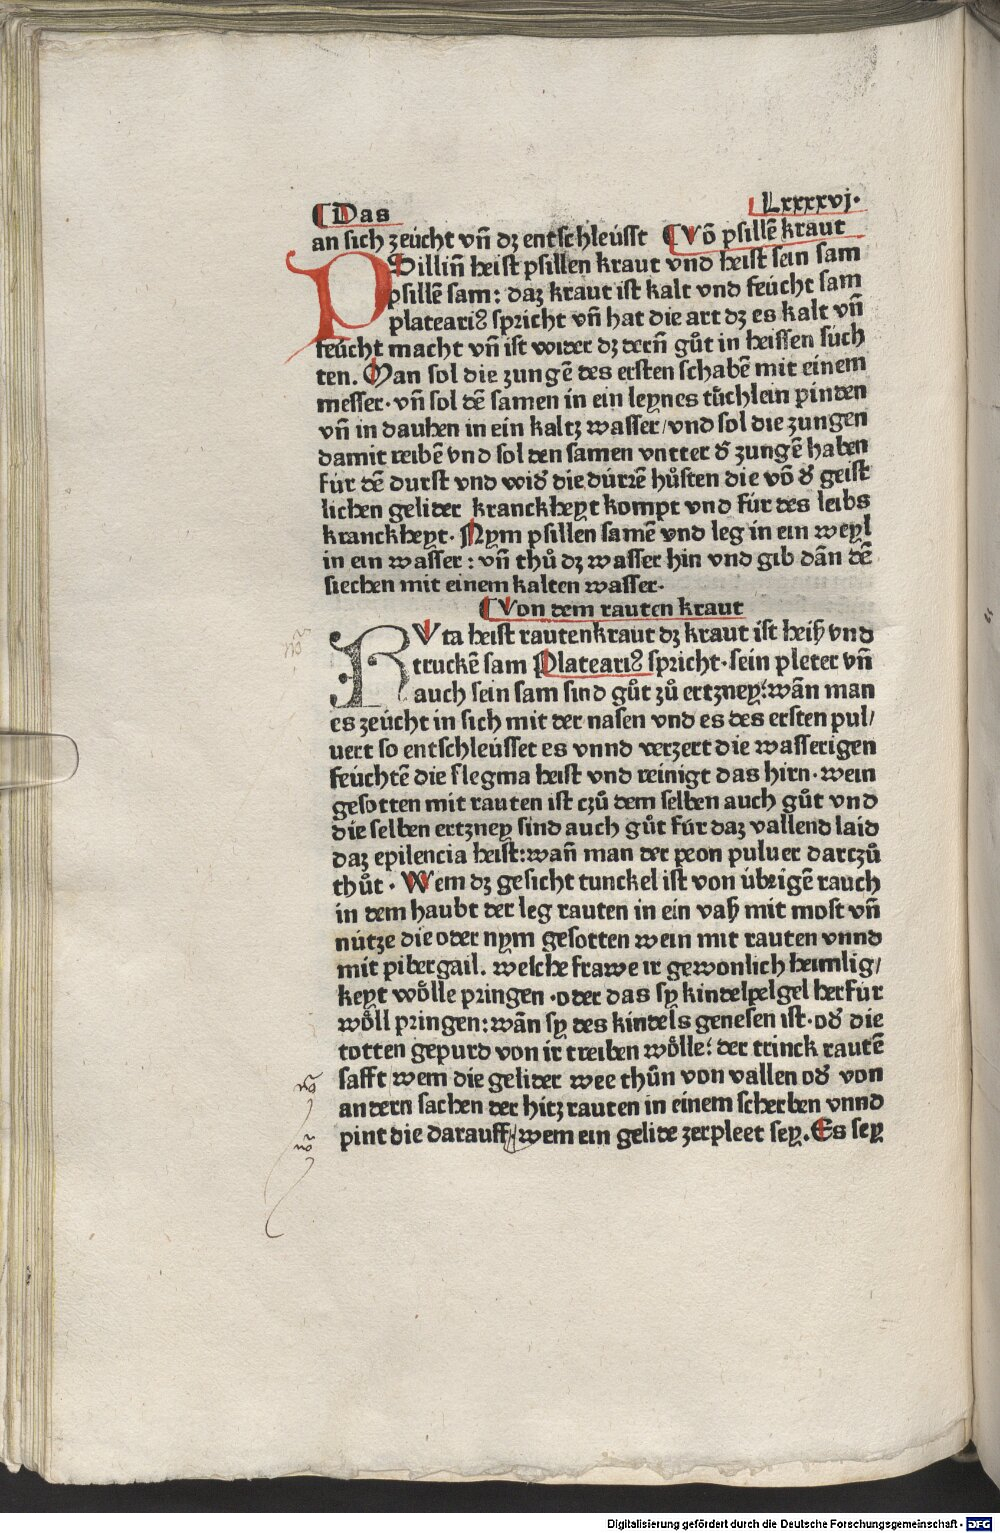 ¶ Das
Lxxxxvj.
an sich zeücht vñ dz entschleüsst ¶ Võ psillẽ kraut
PSillin̄ heist psillen kraut vnd heist sein sam
psillẽ sam: daz kraut ist kalt vnd feücht sam
plateari⁹ spricht vñ hat die art dz es kalt vñ
feücht macht vñ ist wider dz dern̄ gůt in heissen süch
ten. Man sol die zungẽ des ersten schabẽ mit einem
messer· vñ sol dẽ samen in ein leynes tüchlein pinden
vñ in dauhen in ein kaltz wasser/ vnd sol die zungen
damit reibẽ vnd sol den samen vntter ð zungẽ haben
für dẽ durst vnd wið die dürrẽ hůsten die võ ð geist
lichen gelider kranckheyt kompt vnd für des leibs
kranckheyt· Nym psillen samẽ vnd leg in ein weyl
in ein wasser: vñ thů dz wasser hin vnd gib dãn dẽ
siechen mit einem kalten wasser·
¶ Von dem rauten kraut
RVta heist rautenkraut dz kraut ist heiß vnd
truckẽ sam Plateari⁹ spricht· sein pleter vñ
auch sein sam sind gůt zů ertzney: wãn man
es zeücht in sich mit der nasen vnd es des ersten pul/
uert so entschleüsset es vnnd verzert die wasserigen
feüchtẽ die flegma heist vnd reinigt das hirn· wein
gesotten mit rauten ist czů dem selben auch gůt vnd
die selben ertzney sind auch gůt für daz vallend laid
daz epilencia heist: wañ man der peon puluer darczů
thůt· Wem dz gesicht tunckel ist von übrigẽ rauch
in dem haubt der leg rauten in ein vaß mit most vñ
nütze die oder nym gesotten wein mit rauten vnnd
mit pibergail. welche frawe ir gewonlich heimlig/
keyt wölle pringen· oder das sy kindelpelgel herfür
wöll pringen: wãn sy des kindels genesen ist· oð die
totten gepurd von ir treiben wölle: der trinck rautẽ
safft wem die gelider wee thůn von vallen oð von
andern sachen der hitz rauten in einem scherben vnnd
pint die darauff/ wem ein gelide zerpleet sey. Es sey
Digitalisierung gefördert durch die Deutsche Forschungsgemeinschaft - DFG